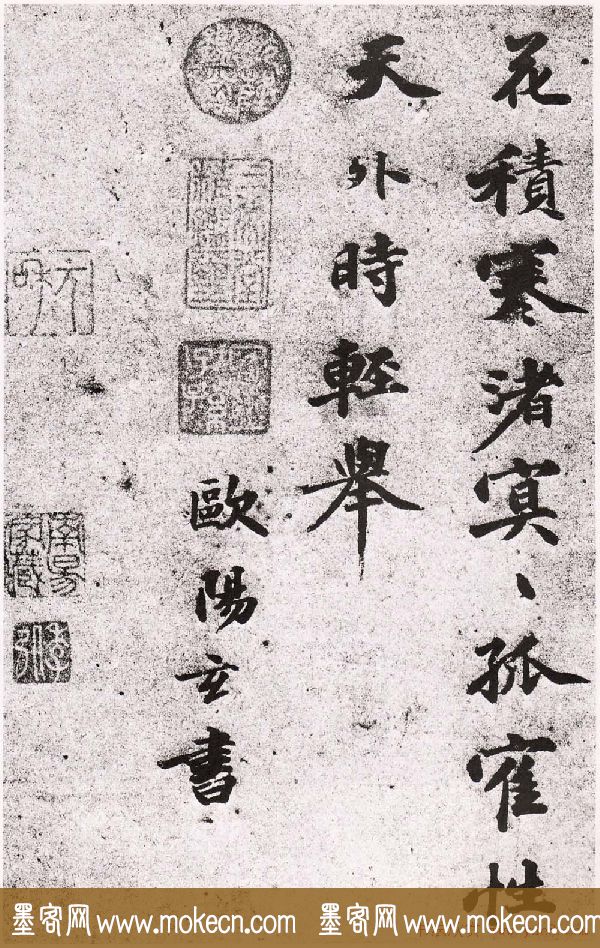 花積寒渚寞、孤隺性
天外時輕舉
歐陽玄書
墨客网 www.mokecn.com 墨客网 www.mokecn.com